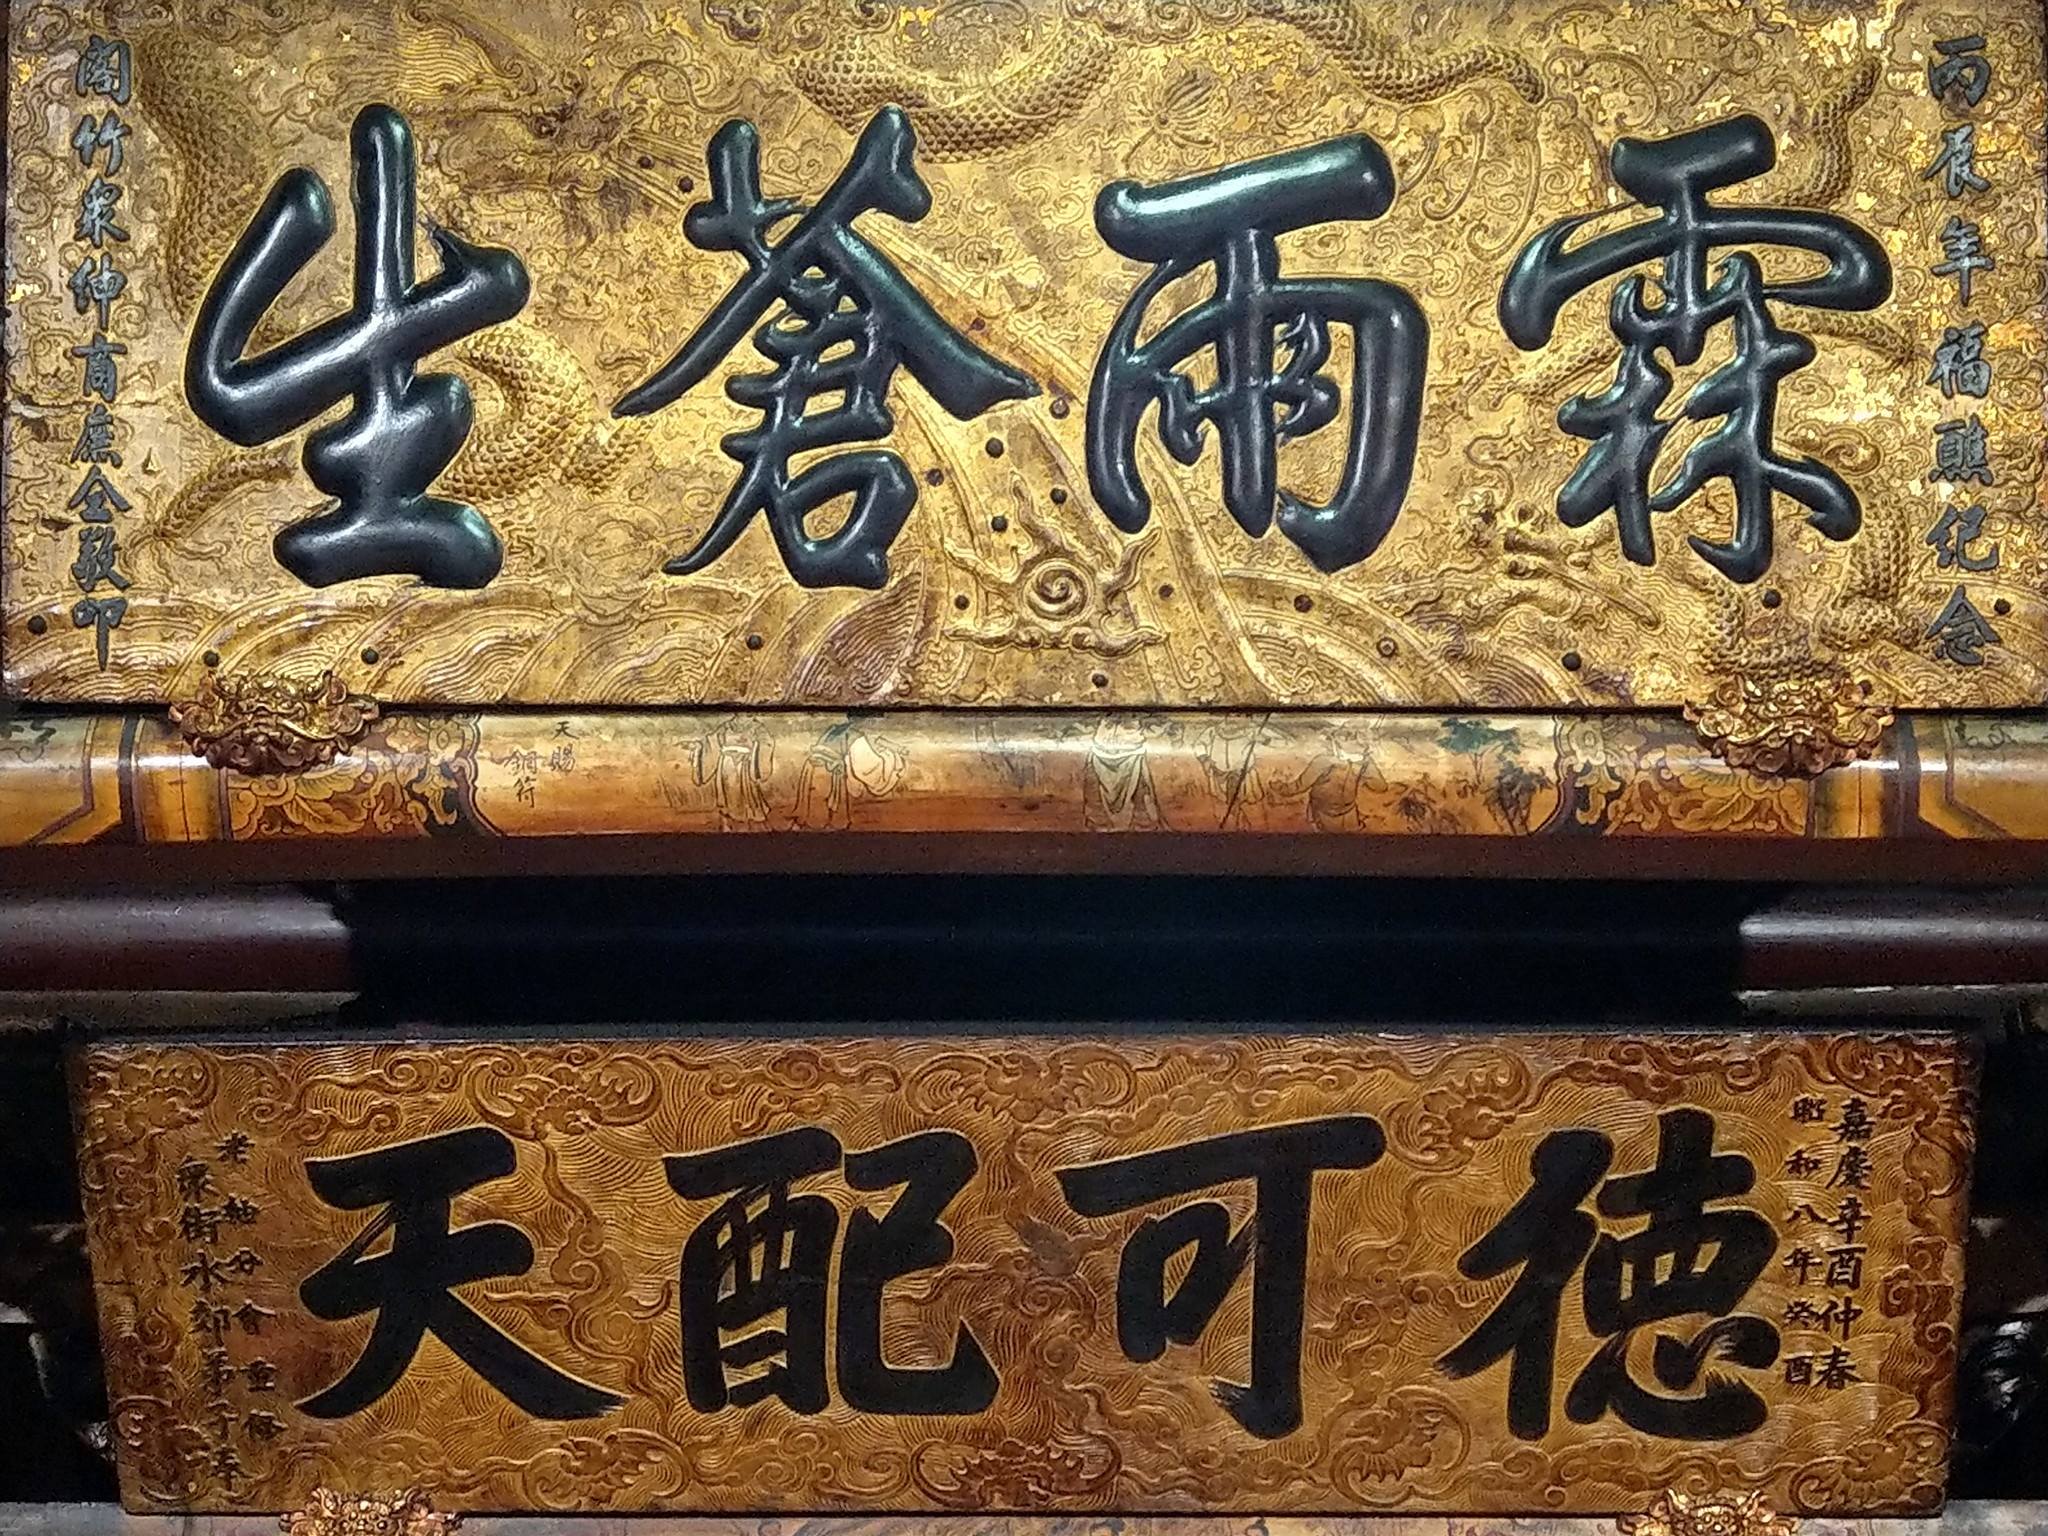 丙辰年福醮紀念
霖雨蒼生
閤竹衆紳商庶仝敬叩
天賜
銅符
嘉慶辛酉仲春
昭和八年癸酉
德可配天
老抽分會重修
衆街水郊弟子奉